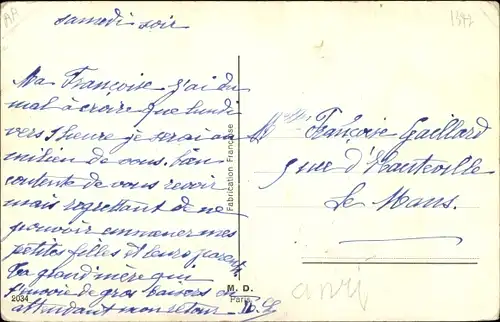 samedi soir
1342
Ma Françoise j'ai du
mal à croire que lundi
vers 1 heure je serai au
milieu de vous. bien
contente de vous revoir
mais regrettant de ne
pouvoir emmener mes
petites filles et leurs parents
Ta grand'mère qui
t'envoie de gros baisers en
attendant mon retour
Melle Françoise Gaillard
5 rue d'Hauteville
Le Mans.
Fabrication Française
M. D.
Paris
2034